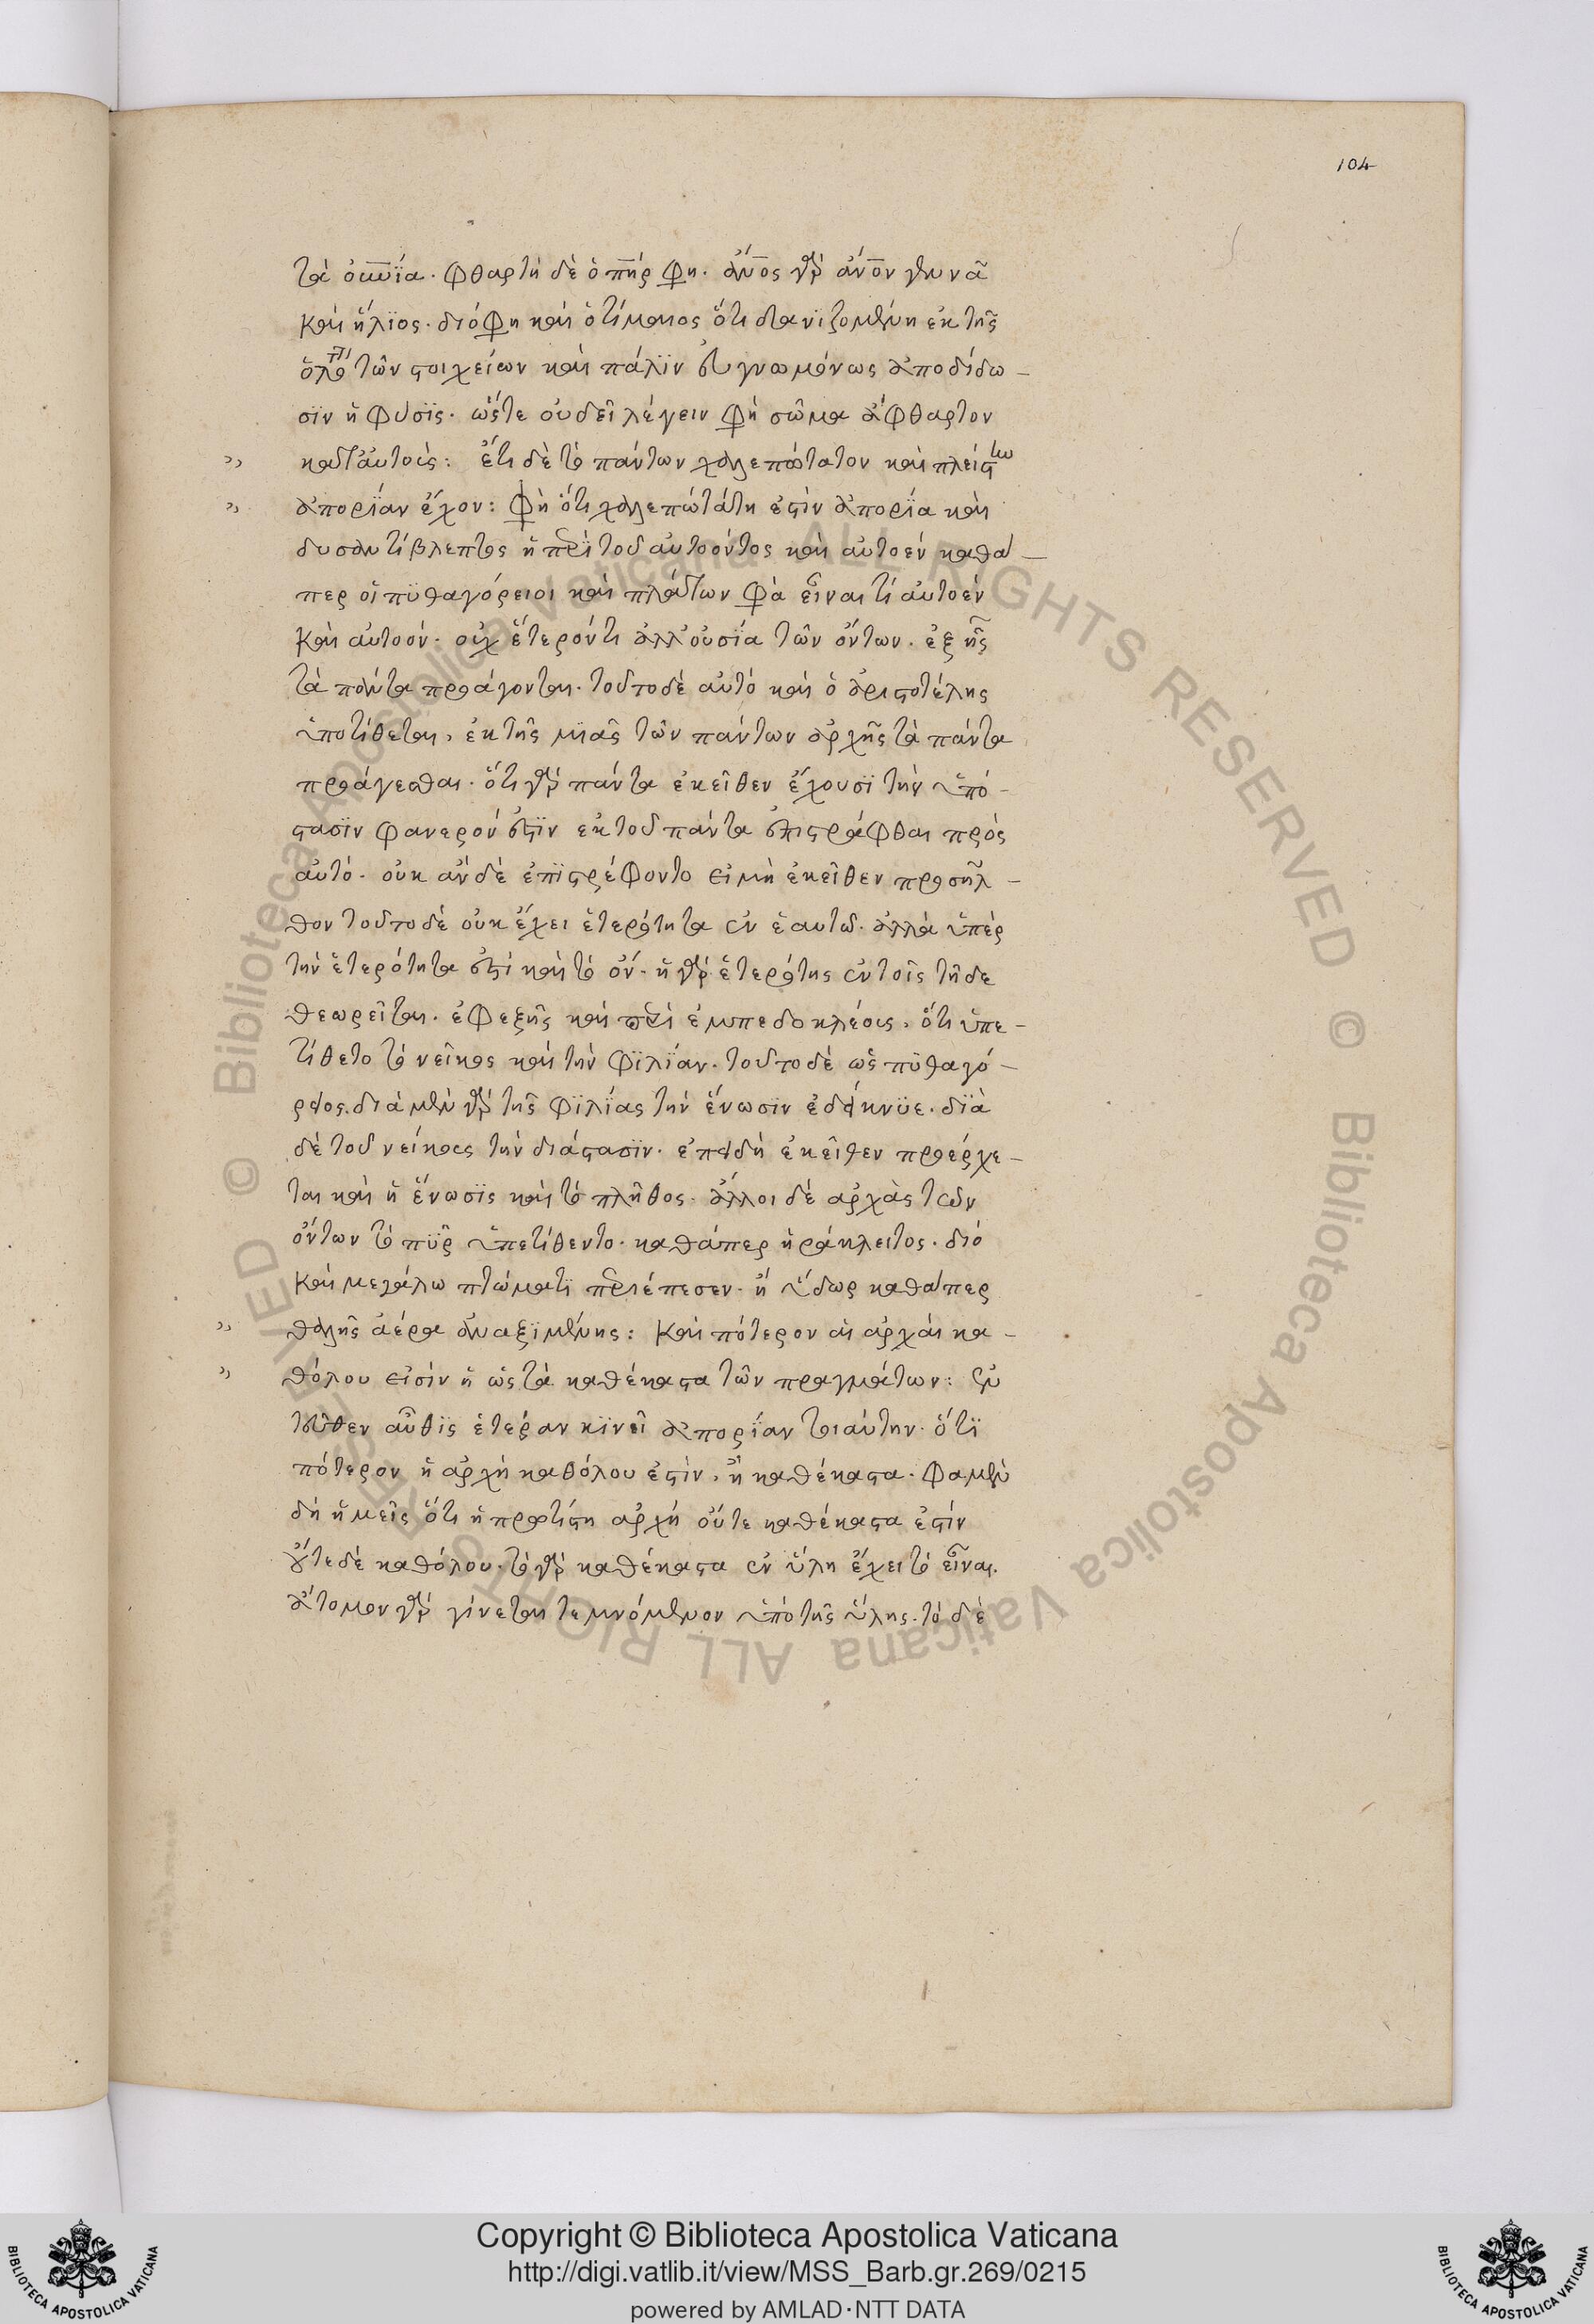 104
τὰ οὐνία. φθαρτὴ δὲ ὁ πῆρ φη. ἄνος γὰρ ἄνον γεννᾶ
καὶ ἥλϊος. διό φη καὶ ὁ τίμαιος ὅτι δανϊζομένη ἐκ τῆς
τῶν στοιχείων καὶ πάλϊν εὐγνωμόνως ἀποδίδω –
σϊν ἡ φύσϊς. ὥστε οὐδεῖ λέγειν φὴ σῶμα ἄφθαρτον
» κατ' αὐτούς: ἔτι δὲ τὸ πάντων χαλεπώτατον καὶ πλείστην
» ἀπορΐαν ἔχον: φὴ ὅτι χαλεπωτάτη ἐστὶν ἀπορΐα καὶ
δυσαντίβλεπτος ἡ περὶ τοῦ αὐτοόντος καὶ αὐτοεν καθά –
περ οἱ πϋθαγόρειοι καὶ πλάτων φὰ εἶναι τί αὐτοέν
καὶ αὐτοόν. οὐχ ἕτερόν τι ἀλλ' οὐσία τῶν ὄντων. ἐξ ἧς
τὰ πάντα προάγονται. τοῦτο δὲ αὐτό καὶ ὁ ἀριστοτέλης
ὑποτίθεται, ἐκ τῆς μϊᾶς τῶν πάντων ἀρχῆς τὰ πάντα
προάγεσθαι. ὅτι γὰρ πάντα ἐκεῖθεν ἔχουσϊ τὴν ὑπό –
στασϊν φανερόν ἐστϊν ἐκ τοῦ πάντα ἐπεστράφθαι πρὸς
αὐτό. οὐκ ἂν δὲ ἐπϊστρέφοντο εἰ μὴ ἐκεῖθεν προσῆλ –
θον τοῦτο δὲ οὐκ ἔχει ἑτερότητα ἐν ἑαυτῶ. ἀλλὰ ὑπὲρ
τὴν ἑτερότητα ἐστὶ καὶ τὸ ὄν. ἡ γὰρ ἑτερότης ἐν τοῖς τῆδε
θεωρεῖται. ἐφεξῆς καὶ περὶ ἐμπεδοκλέους, ὅτι ὑπε –
τίθετο τὸ νεῖκος καὶ τὴν φϊλΐαν. τοῦτο δὲ ὡς πϋθαγό –
ρειος. διὰ μὲν γὰρ τῆς φϊλΐας τὴν ἕνωσϊν ἐδείκνϋε. δϊὰ
δὲ τοῦ νείκους τὴν διάστασϊν. ἐπειδὴ ἐκεῖθεν προέρχε –
ται καὶ ἡ ἕνωσϊς καὶ τὸ πλῆθος. ἄλλοι δὲ ἀρχὰς τῶν
ὄντων τὸ πῦρ ὑπετίθεντο. καθάπερ ἡράκλειτος. διό
καὶ μεγάλω πτώματϊ περιέπεσεν. ἢ ὕδωρ καθάπερ
» θαλῆς ἀέρα ἀναξϊμένης: καὶ πότερον αἱ ἀρχαὶ κα –
» θόλου εἰσὶν ἢ ὡς τὰ καθέκαστα τῶν πραγμάτων: ἐν
τεῦθεν αὖθϊς ἑτέραν κϊνεῖ ἀπορΐαν τοιαύτην. ὅτϊ
πότερον ἡ ἀρχὴ καθόλου ἐστὶν, ἢ καθέκαστα. φαμὲν
δὴ ἡμεῖς ὅτι ἡ πρωτίστη ἀρχὴ οὔτε καθέκαστα ἐστίν
οὔτε δὲ καθόλου. τὸ γὰρ καθέκαστα ἐν ὕλη ἔχει τὸ εἶναι.
ἄτομον γὰρ γίνεται τεμνόμενον ὑπὸ τῆς ὕλης. τὸ δὲ
Copyright © Biblioteca Apostolica Vaticana
http://digi.vatlib.it/view/MSS_Barb.gr.269/0215
powered by AMLAD·NTT DATA